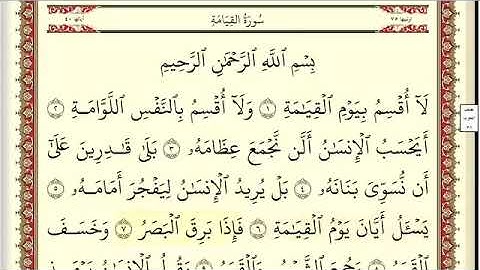 ترتيبها ٧٥ سُورَةُ القِيَامَةِ آياتها ٤٠
بِسْمِ ٱللَّهِ ٱلرَّحْمَٰنِ ٱلرَّحِيمِ
لَآ أُقْسِمُ بِيَوْمِ ٱلْقِيَٰمَةِ ١ وَلَآ أُقْسِمُ بِٱلنَّفْسِ ٱللَّوَّامَةِ ٢
أَيَحْسَبُ ٱلْإِنسَٰنُ أَلَّن نَّجْمَعَ عِظَامَهُۥ ٣ بَلَىٰ قَٰدِرِينَ عَلَىٰٓ
أَن نُّسَوِّىَ بَنَانَهُۥ ٤ بَلْ يُرِيدُ ٱلْإِنسَٰنُ لِيَفْجُرَ أَمَامَهُۥ ٥
يَسْـَٔلُ أَيَّانَ يَوْمُ ٱلْقِيَٰمَةِ ٦ فَإِذَا بَرِقَ ٱلْبَصَرُ ٧ وَخَسَفَ